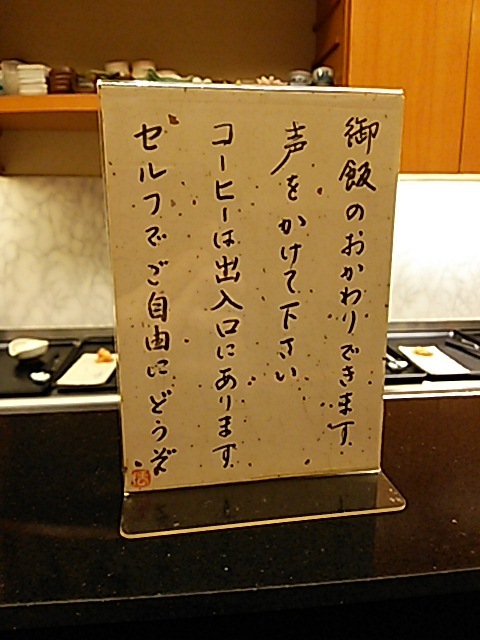 御飯のおかわりできます
声をかけて下さい
コーヒーは出入口にあります
セルフでご自由にどうぞ